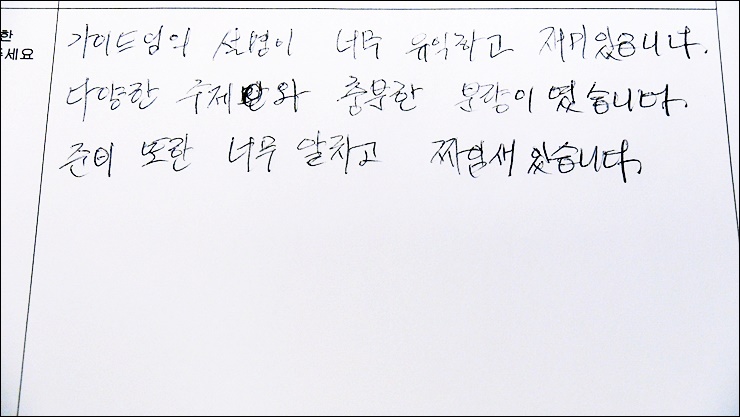 한
주세요
가이드님의 설명이 너무 유익하고 재미있습니다.
다양한 주제와 충분한 분량이 였습니다.
준비 또한 너무 알차고 짜임새 있습니다.